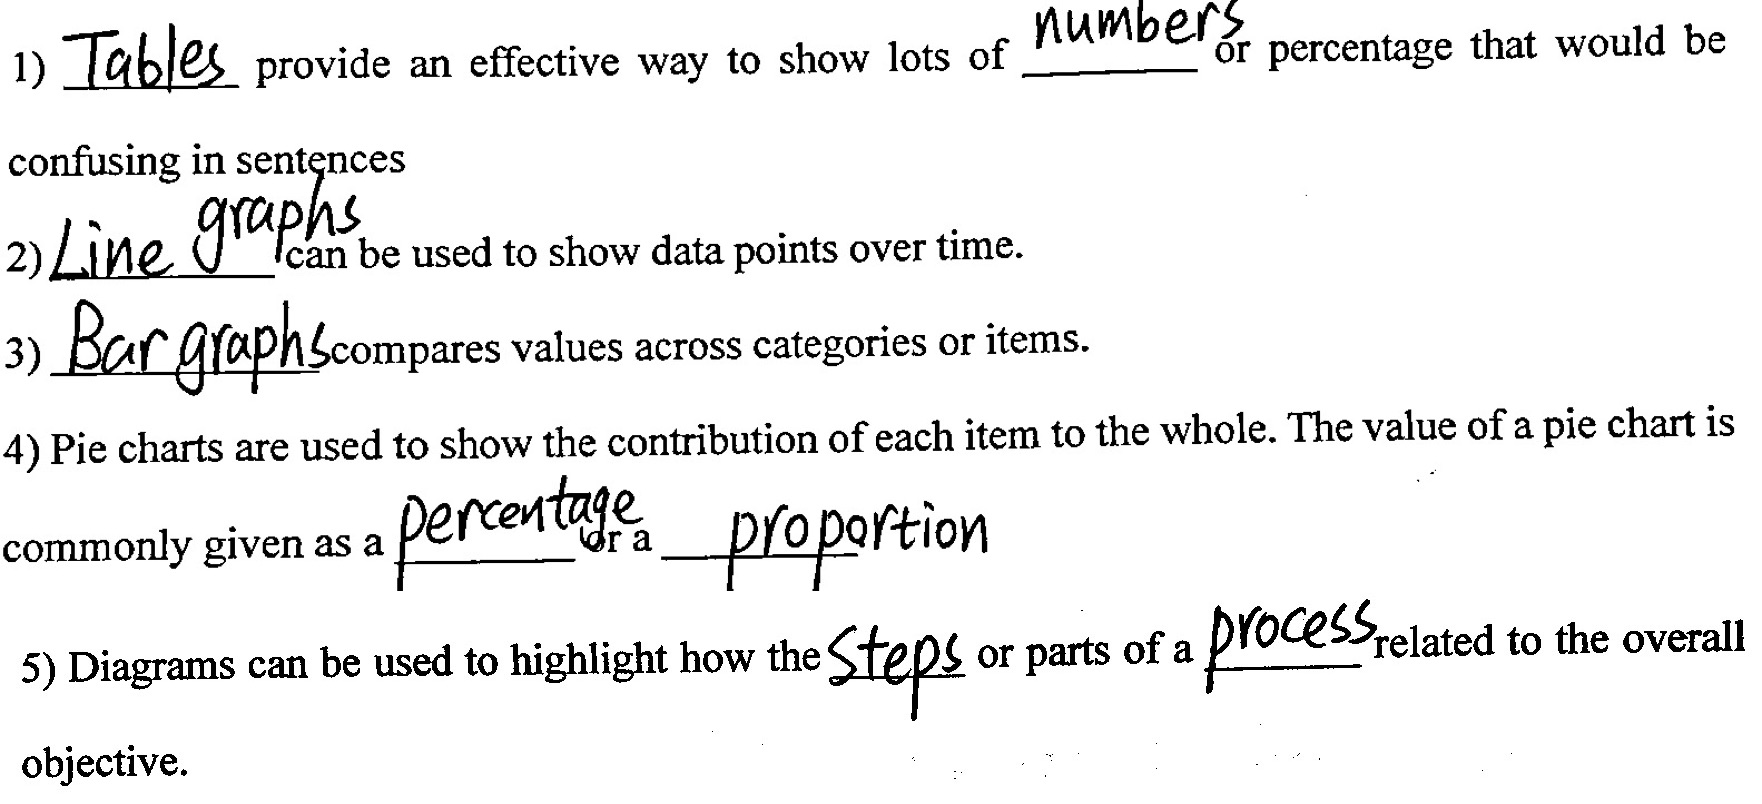 1) Tables provide an effective way to show lots of numbers or percentage that would be
confusing in sentences
2) Line graphs can be used to show data points over time.
3) Bar graphs compares values across categories or items.
4) Pie charts are used to show the contribution of each item to the whole. The value of a pie chart is
commonly given as a percentage or a proportion
5) Diagrams can be used to highlight how the steps or parts of a process related to the overall
objective.